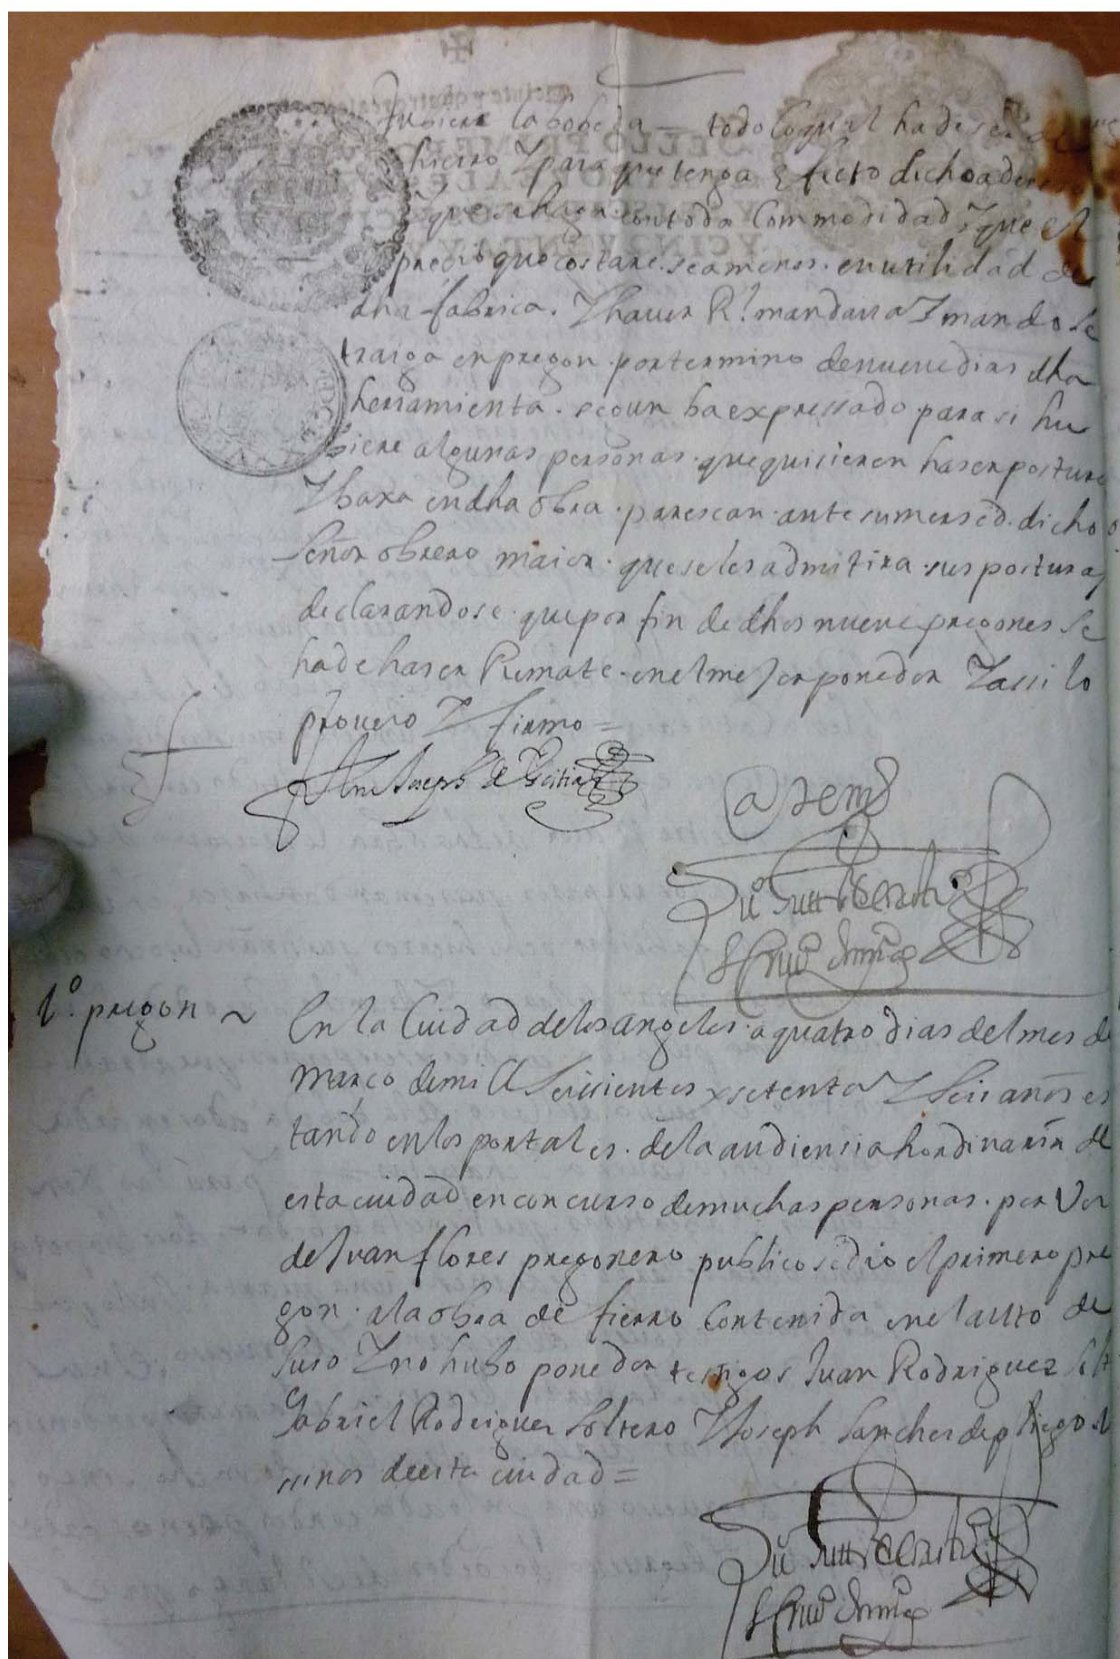 hubiere la bobeda — todo lo qual ha de ser de
hierro Y para que tenga efecto dicho adereso
que se haga con toda Commodidad Y que el
precio que costare sea menos en utilidad de
dha fabrica. Y haver R.l mandava Y mando se
traiga en pregon por termino de nueve dias dha
herramienta segun ba expressado para si hu
biere algunas personas que quisieren haser postura
Y baxa en dha obra parescan ante su mersed dicho
Señor obrero maior que se les admitira sus posturas
declarandose que por fin de dhos nueve pregones se
ha de haser Remate en el mejor ponedor Y assi lo
proveio Y firmo =
Ante mi
1.o pregon ~ En la Ciudad de los angeles a quatro dias del mes de
Março de mill Seiscientos y setenta Y Seis años es
tando en los portales de la audiensia hordinaria de
esta ciudad en concurso de muchas personas por Vos
de Juan flores pregonero publico se dio el primero pre
gon a la obra de fierro Contenida en el autto de
suso Y no hubo ponedor testigos Juan Rodriguez
Gabriel Rodriguez Soltero Y Joseph Sanches de priego
sinos de esta ciudad =